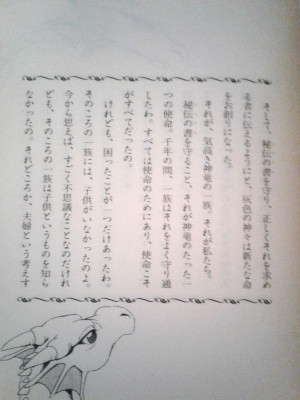 そして、秘伝の書を守り、正しくそれを求め
る者に伝えるようにと、灰色の神々は新たな命
をお創りになった。
それが、気高き神竜の一族。それが私たち。
秘伝の書を守ること、それが神竜のたった一
つの使命。千年の間、一族はそれをよく守り通
したわ。すべては使命のためにあり、使命こそ
がすべてだったの。
けれども、困ったことが一つだけあったわ。
そのころの一族には、子供がいなかったのよ。
今から思えば、すごく不思議なことなのだけれ
ども、そのころの一族は子供というものを知ら
なかったの。それどころか、夫婦という考えす